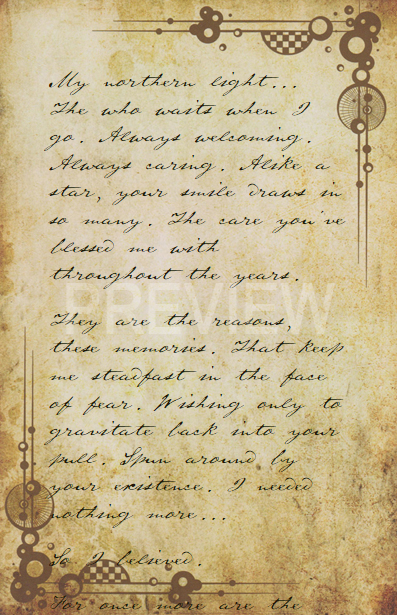 My northern light...
The who waits when I
go. Always welcoming.
Always caring. Alike a
star, your smile draws in
so many. The care you've
blessed me with
throughout the years.
PREVIEW
They are the reasons,
these memories. That keep
me steadfast in the face
of fear. Wishing only to
gravitate back into your
pull. Spun around by
your existence. I needed
nothing more...
So I believed.
For once more are the